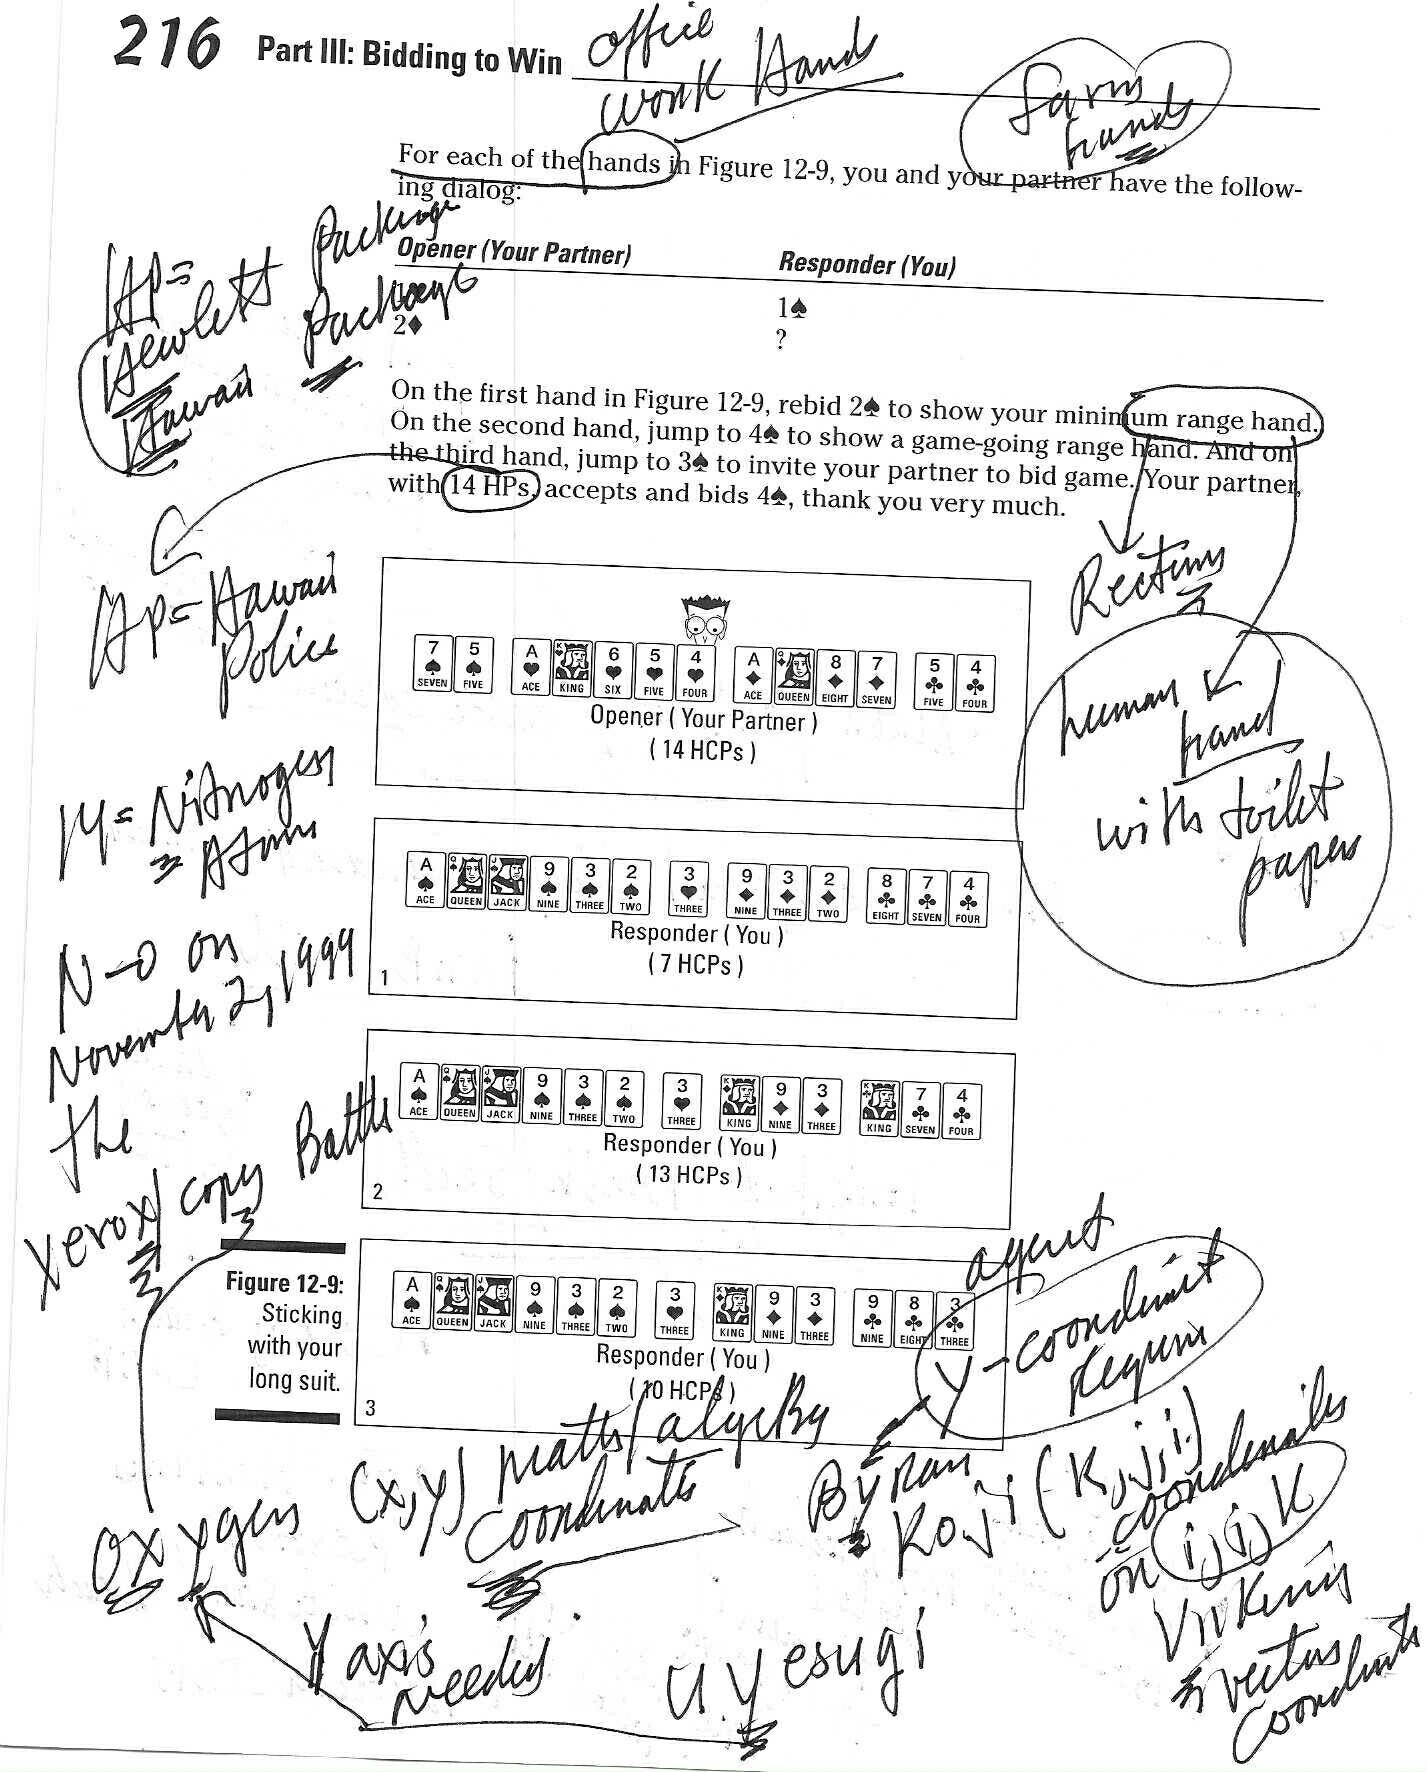 216 Part III: Bidding to Win
office
work Hands
Farm
hands
For each of the hands in Figure 12-9, you and your partner have the follow-
ing dialog:
HP=
Hewlett Package
Hawaii Package
Opener (Your Partner) Responder (You)
1♠
2♦ ?
On the first hand in Figure 12-9, rebid 2♠ to show your minimum range hand.
On the second hand, jump to 4♠ to show a game-going range hand. And on
the third hand, jump to 3♠ to invite your partner to bid game. Your partner,
with 14 HPs, accepts and bids 4♠, thank you very much.
Rectum
human
hand
with toilet
paper
Hp=Hawaii
police
14= Nitrogen
Atom
N-O on
November 2, 1999
the
xerox/copy Battle
7♠ SEVEN 5♠ FIVE A♥ ACE K♥ KING 6♥ SIX 5♥ FIVE 4♥ FOUR A♦ ACE Q♦ QUEEN 8♦ EIGHT 7♦ SEVEN 5♣ FIVE 4♣ FOUR
Opener ( Your Partner )
( 14 HCPs )
A♠ ACE Q♠ QUEEN J♠ JACK 9♠ NINE 3♠ THREE 2♠ TWO 3♥ THREE 9♦ NINE 3♦ THREE 2♦ TWO 8♣ EIGHT 7♣ SEVEN 4♣ FOUR
Responder ( You )
( 7 HCPs )
1
A♠ ACE Q♠ QUEEN J♠ JACK 9♠ NINE 3♠ THREE 2♠ TWO 3♥ THREE K♦ KING 9♦ NINE 3♦ THREE K♣ KING 7♣ SEVEN 4♣ FOUR
Responder ( You )
( 13 HCPs )
2
A♠ ACE Q♠ QUEEN J♠ JACK 9♠ NINE 3♠ THREE 2♠ TWO 3♥ THREE K♦ KING 9♦ NINE 3♦ THREE 9♣ NINE 8♣ EIGHT 3♣ THREE
Responder ( You )
( 10 HCPs )
3
Figure 12-9:
Sticking
with your
long suit.
agent
y-coordinate
require
(x,y) math/algebra
coordinates
Byran
Koji (K,j,i)
coordinates
on i,j,K
vectors
coordinates
oxygen
Y axis
needed
U.yesugi